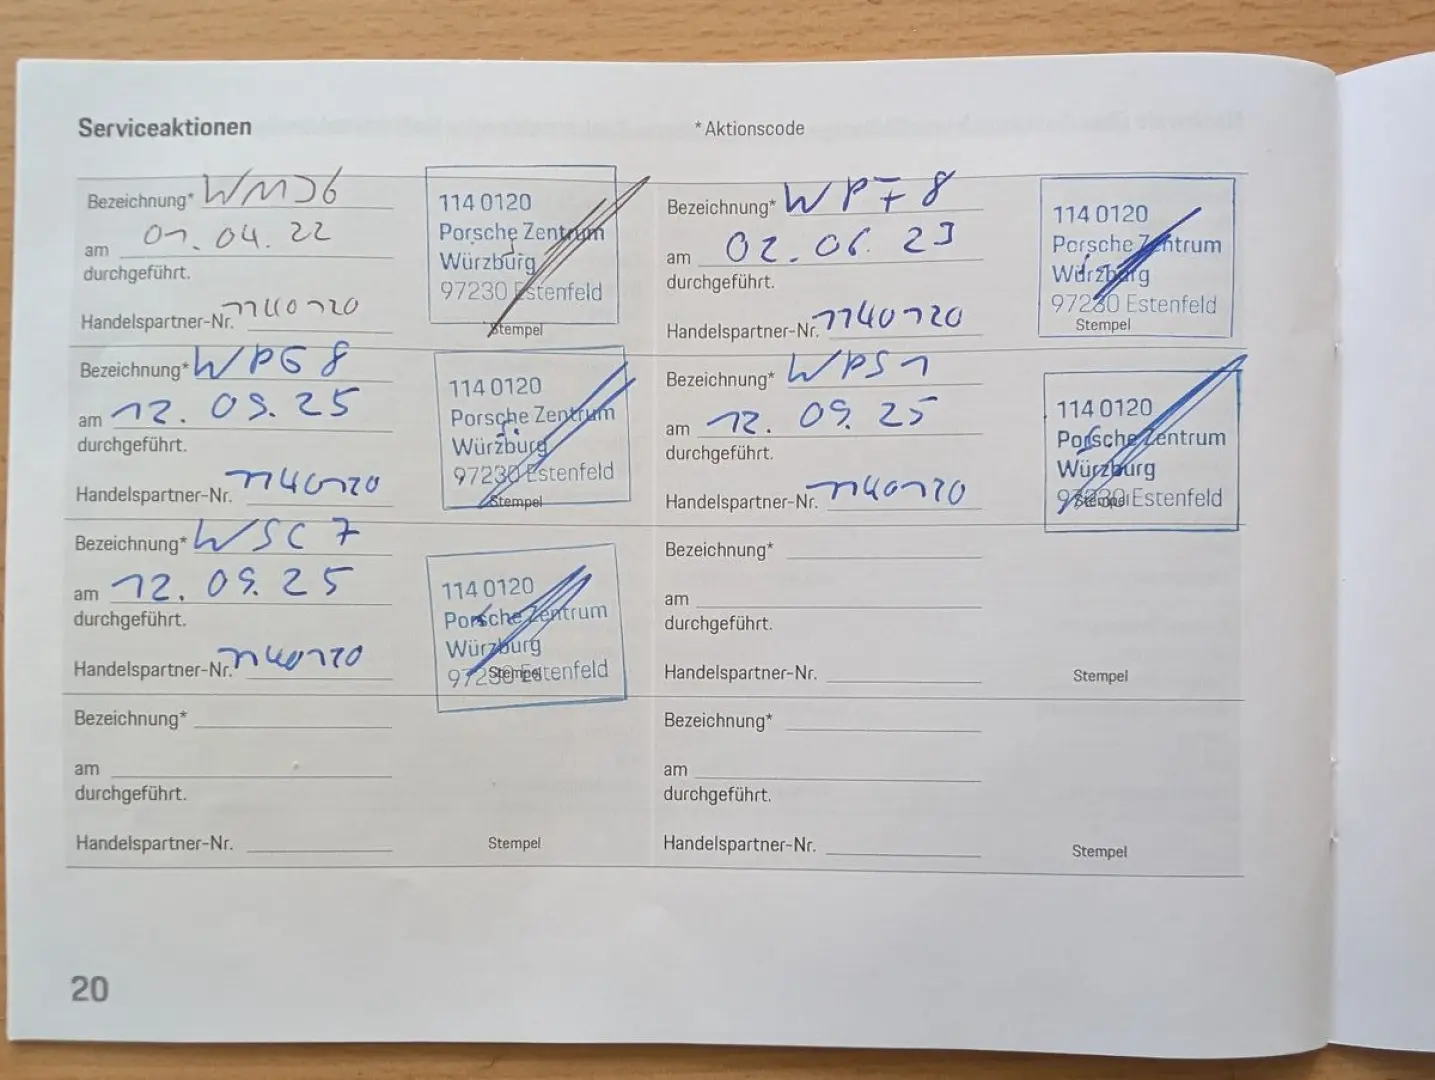 Serviceaktionen
* Aktionscode
Bezeichnung* WMJ6
am 01.04.22
durchgeführt.
Handelspartner-Nr. 1140120
114 0120
Porsche Zentrum
Würzburg
97230 Estenfeld
Stempel
Bezeichnung* WPF8
am 02.06.23
durchgeführt.
Handelspartner-Nr. 1140120
114 0120
Porsche Zentrum
Würzburg
97230 Estenfeld
Stempel
Bezeichnung* WPG8
am 12.09.25
durchgeführt.
Handelspartner-Nr. 1140120
114 0120
Porsche Zentrum
Würzburg
97230 Estenfeld
Stempel
Bezeichnung* WPS1
am 12.09.25
durchgeführt.
Handelspartner-Nr. 1140120
114 0120
Porsche Zentrum
Würzburg
97230 Estenfeld
Stempel
Bezeichnung* WSC7
am 12.09.25
durchgeführt.
Handelspartner-Nr. 1140120
114 0120
Porsche Zentrum
Würzburg
97230 Estenfeld
Stempel
Bezeichnung*
am
durchgeführt.
Handelspartner-Nr.
Stempel
Bezeichnung*
am
durchgeführt.
Handelspartner-Nr.
Stempel
Bezeichnung*
am
durchgeführt.
Handelspartner-Nr.
Stempel
20